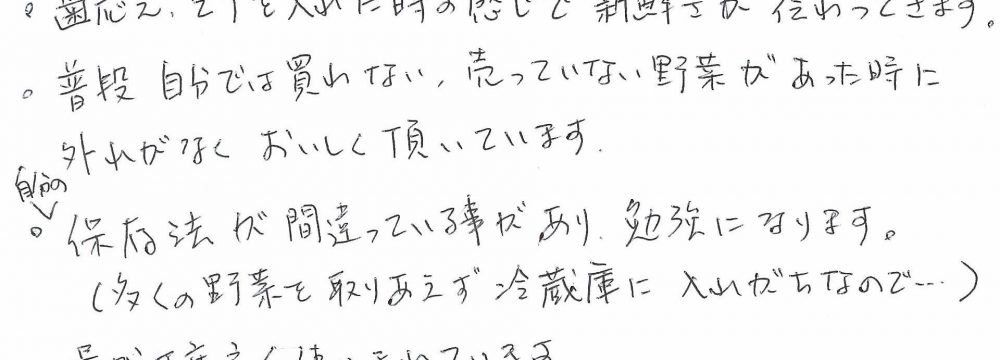 。歯応え、包丁を入れた時の感じで新鮮さが伝わってきます。
。普段 自分では買れない、売っていない野菜があった時に
外れがなく おいしく頂いています.
自分の
。保存法が間違っている事があり、勉強になります。
(多くの野菜を取りあえず冷蔵庫に入れがちなので…)